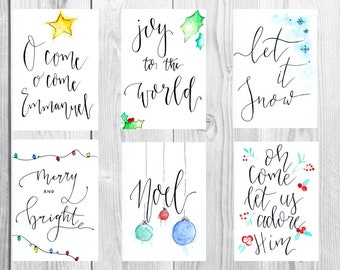 O come
o come
Emmanuel
joy
to the
world
let
it
Snow
Merry
AND
bright
Noel
oh
come
let us
adore
Him